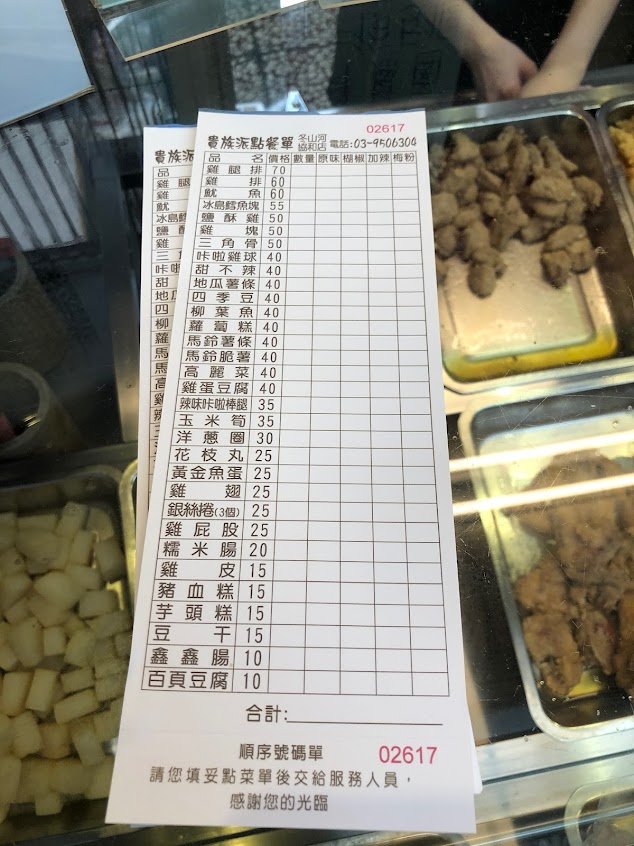 02617
貴族派點餐單 冬山河
協和店 電話:03-9506304
品名 價格 數量 原味 椒椒 加辣 梅粉
雞腿排 70
雞排 60
魷魚 60
冰島鱈魚塊 55
鹽酥雞 50
雞塊 50
三角骨 50
咔啦雞球 40
甜不辣 40
地瓜薯條 40
四季豆 40
柳葉魚 40
蘿蔔糕 40
馬鈴薯條 40
馬鈴脆薯 40
高麗菜 40
雞蛋豆腐 40
辣味咔啦棒腿 35
玉米筍 35
洋蔥圈 30
花枝丸 25
黃金魚蛋 25
雞翅 25
銀絲捲(3個) 25
雞屁股 25
糯米腸 20
雞皮 15
豬血糕 15
芋頭糕 15
豆干 15
鑫鑫腸 10
百頁豆腐 10
合計:
順序號碼單 02617
請您填妥點菜單後交給服務人員,
感謝您的光臨
貴族派
品
雞腿
雞
魷
冰島
鹽
雞
三
咔啦
甜
地瓜
四
柳
蘿
馬
馬
高